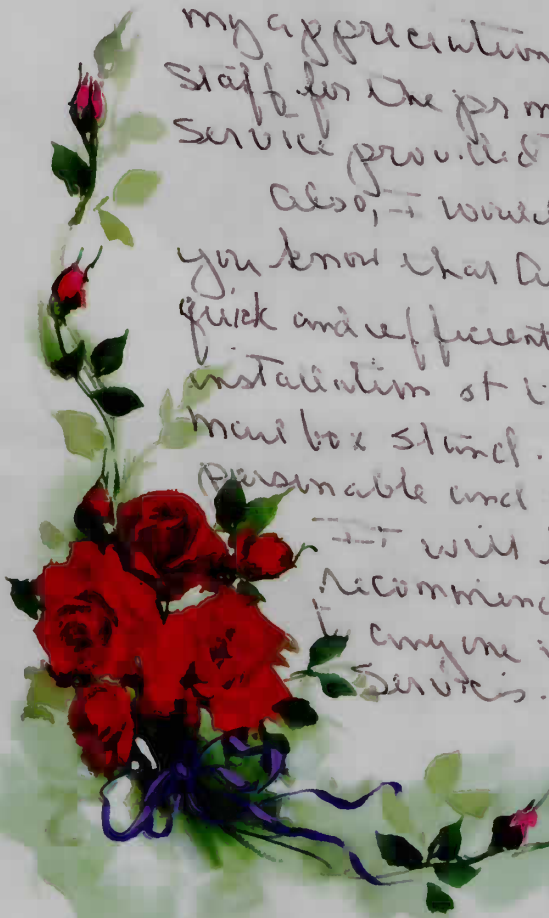 my appreciation
Staff for the
Service provided
Also, I would
you know that
quick and efficient
installation of
mail box stand.
personable and
It will
recommend
to anyone
Services.